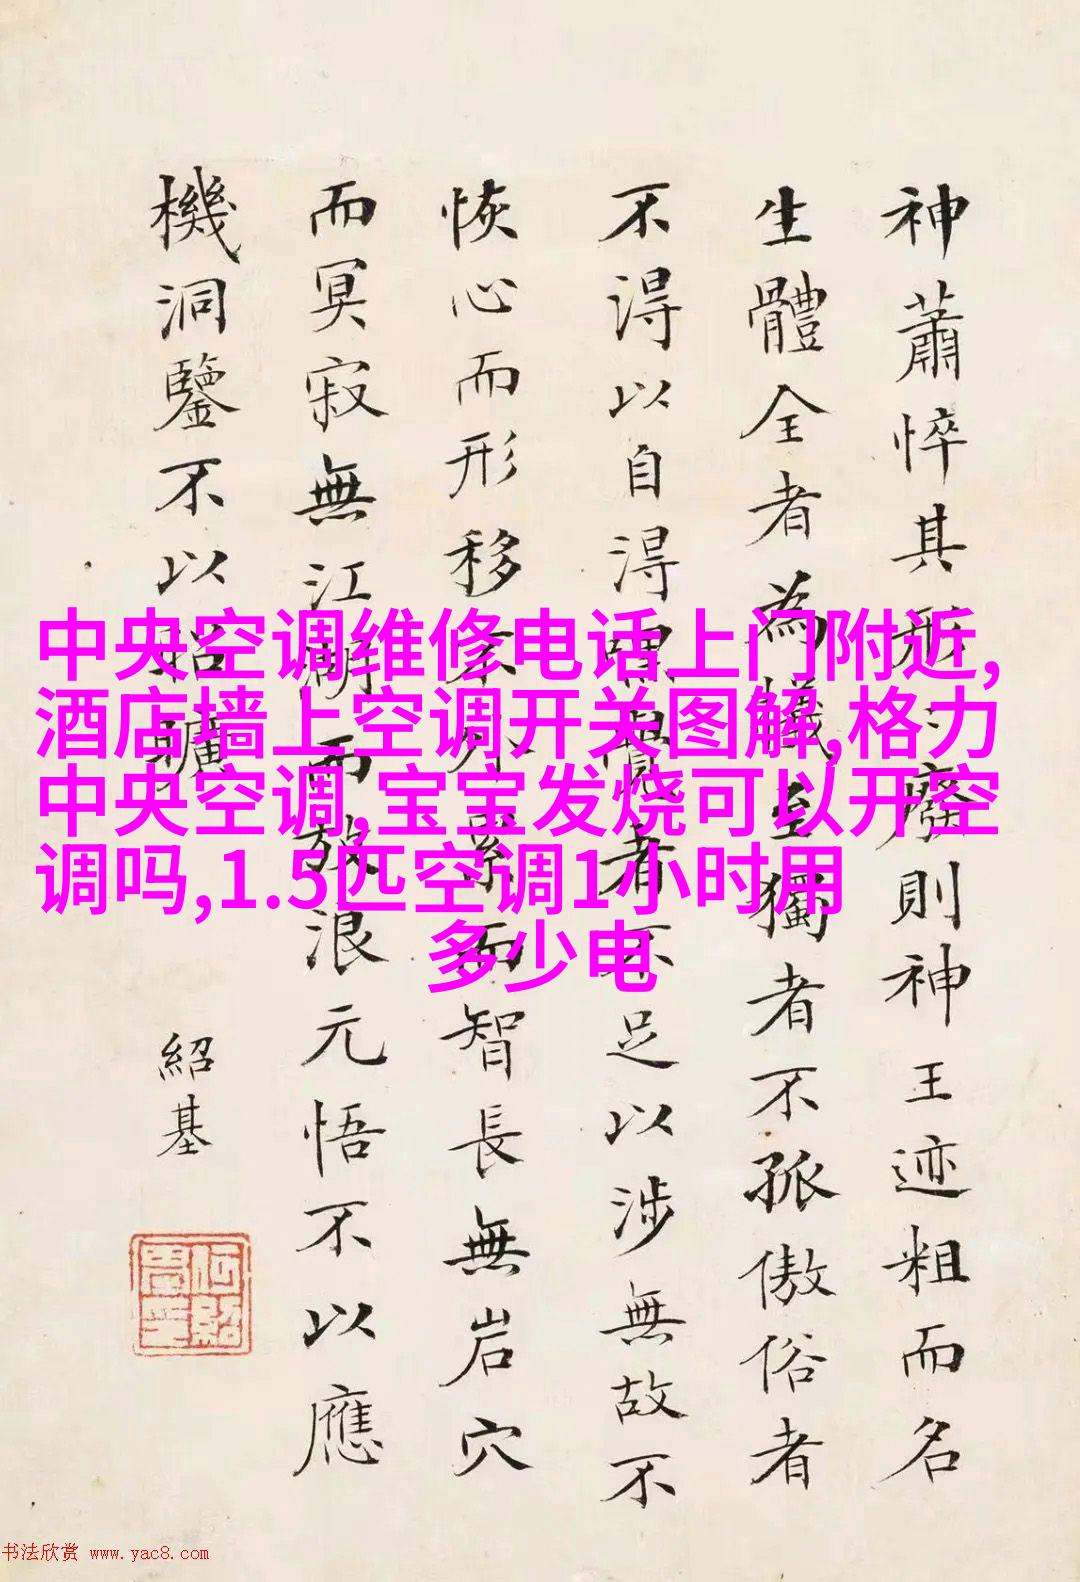 神蕭悴其形之癈則神王迹粗而名
生體全者為犧至獨者不孤傲俗者
不得以自得者不足以涉無故不
恢心而形移外累而智長無岩穴
而冥寂無江湖而放浪元悟不以應
機洞鑒不以招曠
紹基
何紹基印
中央空调维修电话上门附近,
酒店墙上空调开关图解,格力
中央空调,宝宝发烧可以开空
调吗,1.5匹空调1小时用
多少电
书法欣赏 www.yac8.com